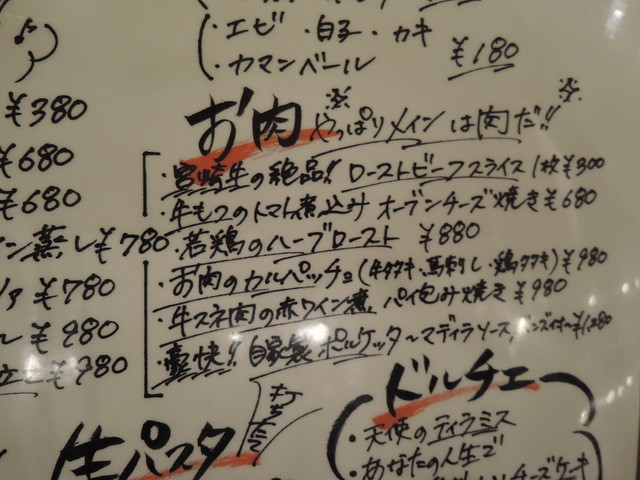 ・エビ ・白子 ・カキ
・カマンベール
¥180
¥380
¥680
¥680
ン蒸し¥780
¥780
¥980
¥980
お肉 やっぱりメインは肉だ!!
・宮崎牛の絶品!! ローストビーフスライス 1枚¥300
・牛もつのトマト煮込み オーブンチーズ焼き ¥680
・若鶏のハーブロースト ¥880
・お肉のカルパッチョ(牛タタキ・馬刺し・鶏タタキ) ¥980
・牛スネ肉の赤ワイン煮 パイ包み焼き ¥980
・豪快!! 自家製ポルケッタ~マディラソース
生パスタ
ドルチェ
・天使のティラミス
・あなたの人生で
チーズケーキ